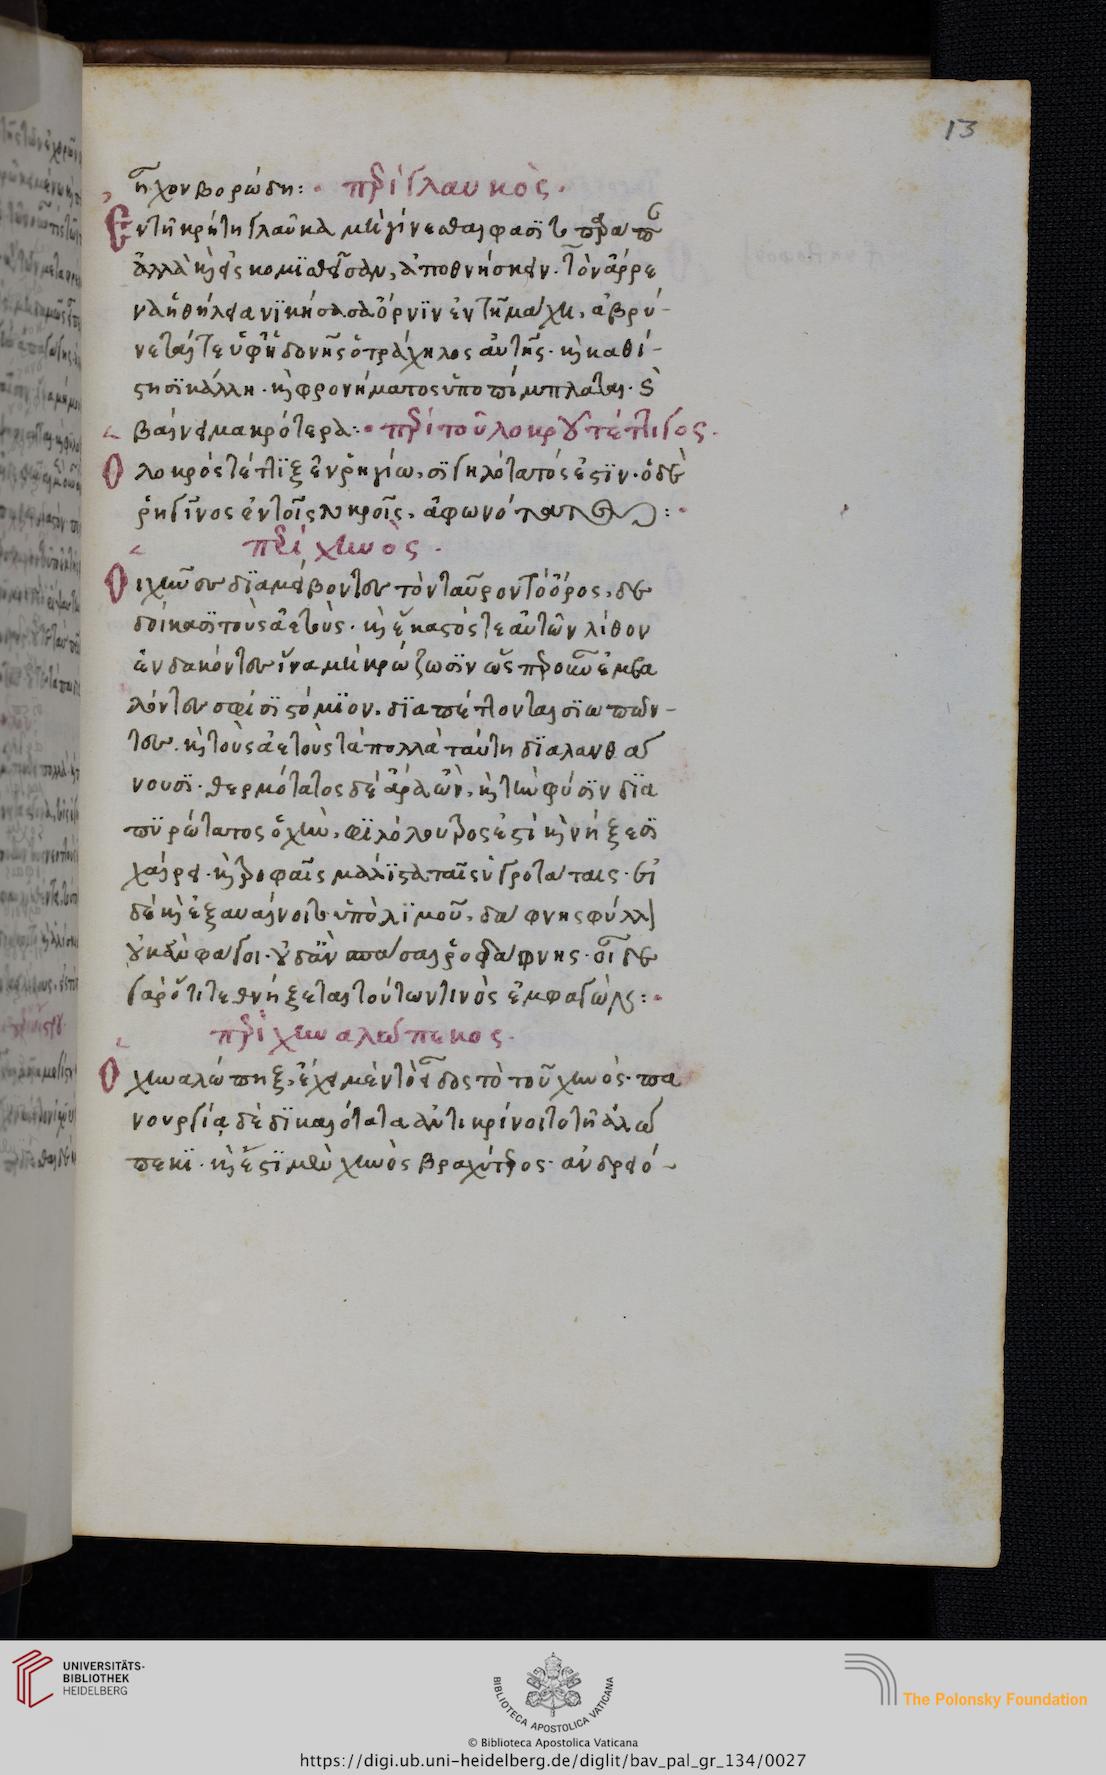 13
τῆχον βορώδη: · περὶ γλαυκὸς ·
Ἐν τῆ κρήτη γλαῦκα μὴ γίνεσθαι φασὶ τὸ παράπαν
ἀλλὰ καὶ εἰσκομϊσθεῖσαν, ἀποθνήσκειν. τὸν ἄρρε
να ἡ θήλεια νϊκήσασα ὄρνϊν ἐν τῆ μάχη, ἁβρύ-
νεταί τε ὑφ' ἡδονῆς ὁ τράχηλος αὐτῆς · καὶ καθί-
βαίνει μακρότερα: · περὶ τοῦ λοκροῦ τέττιγος ·
Ο λοκρὸς τέττϊξ ἐν ῥηγίω, σϊγηλότατός ἐστϊν · ὁ δὲ
ῥηγῖνος ἐν τοῖς λοκροῖς, ἀφωνότατος :·
περὶ χηνὸς ·
Οι χῆνες δϊαμείβοντες τὸν ταῦρον τὸ ὄρος, δε
δοίκασϊ τοὺς ἀετοὺς · καὶ ἕκαστός τε αὐτῶν λίθον
ἐνδακόντες ἵνα μὴ κρώζωσϊν ὥσπερ οὖν ἐμβα
λόντες σφίσϊ στόμϊον, δϊαπέττονται σϊωπῶν-
τες. καὶ τοὺς ἀετοὺς τὰ πολλὰ ταύτη δϊαλανθά
νουσϊ · θερμότατος δὲ ἄρα ὢν, καὶ τὴν φύσϊν δϊα
πϋρώτατος ὁ χὴν, φϊλόλουτρος ἐστὶ καὶ νήξεσϊ
χαίρει · καὶ τροφαῖς μάλϊστα ταῖς ὑγροτάταις · εἰ
δὲ καὶ ἐξαυαίνοιτο ὑπὸ λϊμοῦ, δάφνης φύλλον
οὐκ ἂν φάγοι · οὐδ' ἂν ἀπάσαιρο δάφνης · οἶδε
γὰρ ὅτι τεθνήξεται τούτων τινὸς ἐμφαγών :·
περὶ χηναλώπεκος ·
Ο χηναλώπηξ, ἔχει μὲν τὸ εἶδος τὸ τοῦ χηνός · πα
νουργία δὲ δϊκαιότατα ἀντικρίνοιτο τῆ ἀλώ
πεκϊ · καὶ ἔστϊ μὲν χηνὸς βραχύτερος · ἀνδρειό-
UNIVERSITÄTS-
BIBLIOTHEK
HEIDELBERG
BIBLIOTECA APOSTOLICA VATICANA
The Polonsky Foundation
© Biblioteca Apostolica Vaticana
https://digi.ub.uni-heidelberg.de/diglit/bav_pal_gr_134/0027